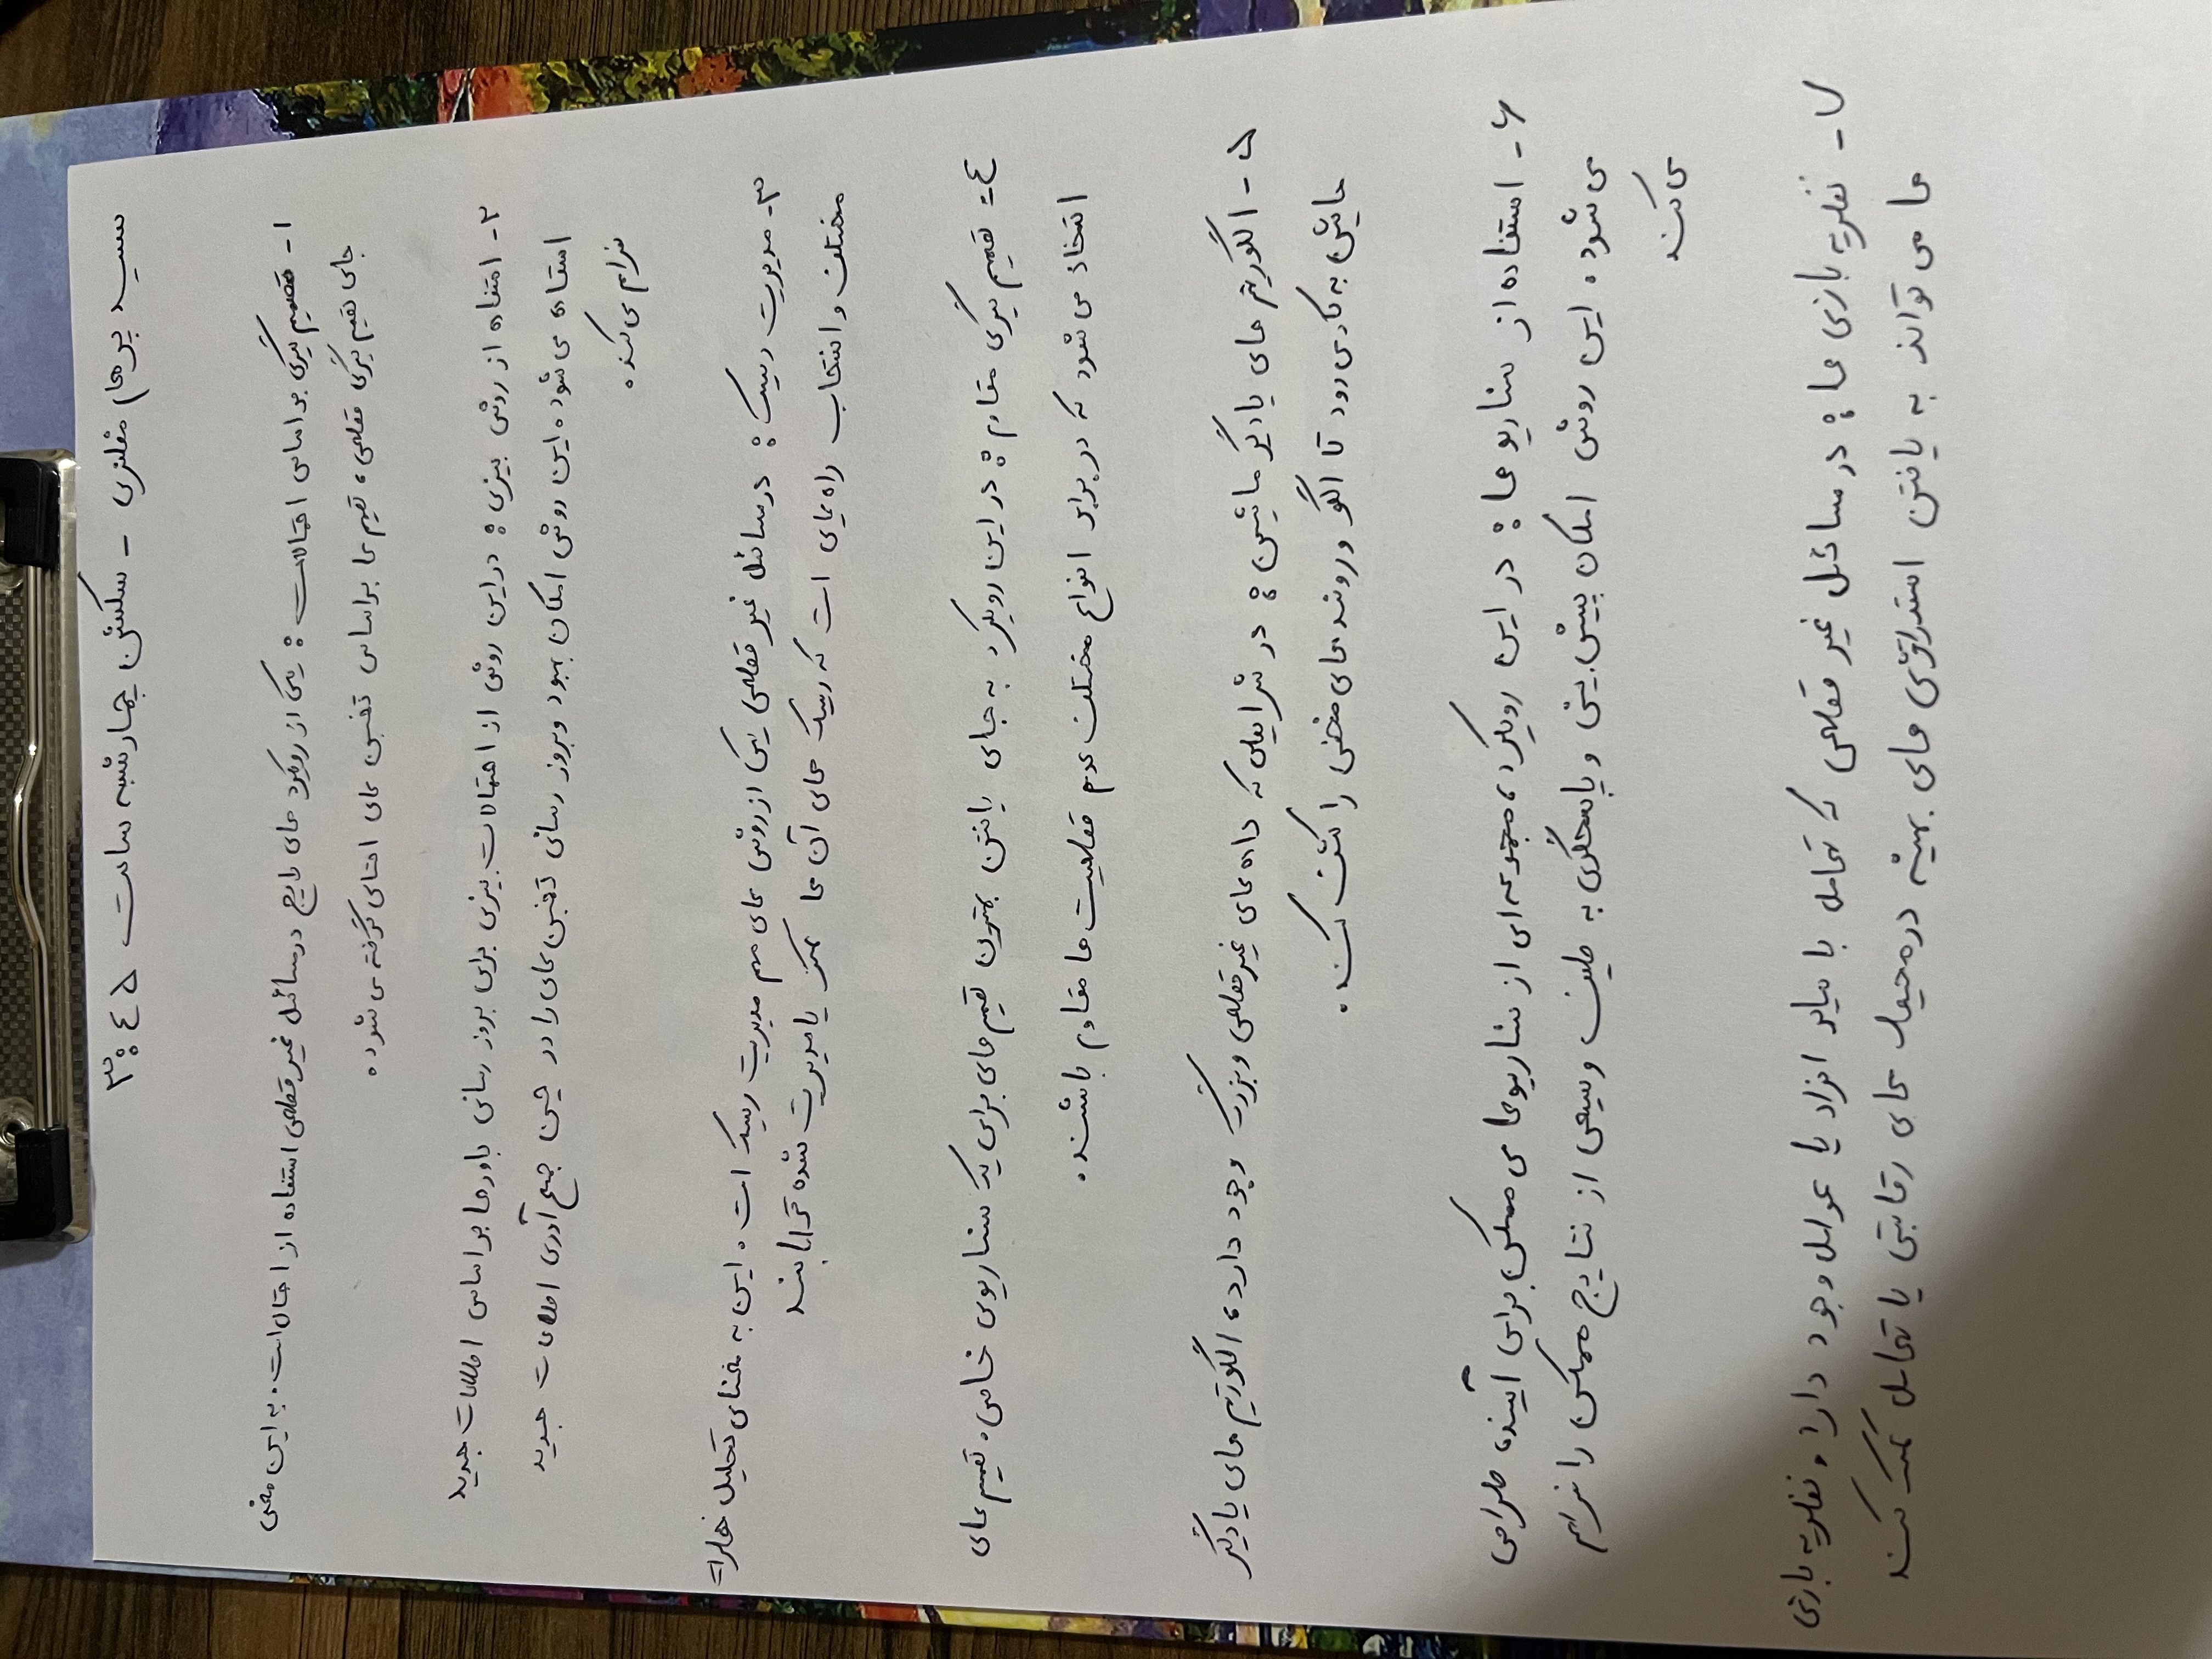 سید پرهام مظفری - سکشن چهارشنبه ساعت ۳:٤۵
۱- تصمیم گیری بر اساس احتمالات : یکی از رویکرد های رایج در مسائل غیر قطعی استفاده از احتمال است. به این معنی
جای تصمیم گیری قطعی، تصمیم ها براساس تخمین های احتمالی گرفته می شود.
۲- استفاده از روش بیزی : در این روش از احتمالات بیزی برای بروز رسانی باورها بر اساس اطلاعات جدید
استفاده می شود. این روش امکان بهبود و بروز رسانی تخمین های را در حین جمع آوری اطلاعات جدید
فراهم می کند.
۳- مدیریت ریسک : در مسائل غیر قطعی یکی از روش های مهم مدیریت ریسک است. این به معنای تحلیل خطرات
مختلف و انتخاب راه هایی است که ریسک های آن ها کمتر یا مدیریت شده تر باشند
٤- تصمیم گیری مقاوم : در این رویکرد به جای یافتن بهترین تصمیم های برای یک سناریوی خاص، تصمیم های
اتخاذ می شود که در برابر انواع مختلف عدم قطعیت ها مقاوم باشند.
۵- الگوریتم های یادگیر ماشین : در شرایطی که داده های غیر قطعی و بزرگ وجود دارد، الگوریتم های یادگیر
ماشین به کار می رود تا الگو و روند های مخفی را کشف کند.
۶- استفاده از سناریو ها : در این رویکرد، مجموعه ای از سناریوها ی ممکن برای آینده طراحی
می شود. این روش امکان پیش بینی و پاسخگوی به طیف وسیعی از نتایج ممکن را فراهم
می کند
۷- نظریه بازی ها : در مسائل غیر قطعی که تعامل با سایر افراد یا عوامل وجود دارد، نظریه بازی
ها می تواند به یافتن استراتژی های بهینه در محیط های رقابتی یا تعامل کمک کند